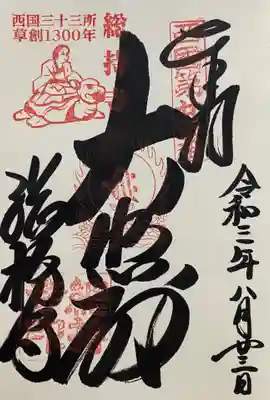 西国三十三所
草創1300年
総持
奉拝
大悲殿
総持寺
令和三年八月廿三日